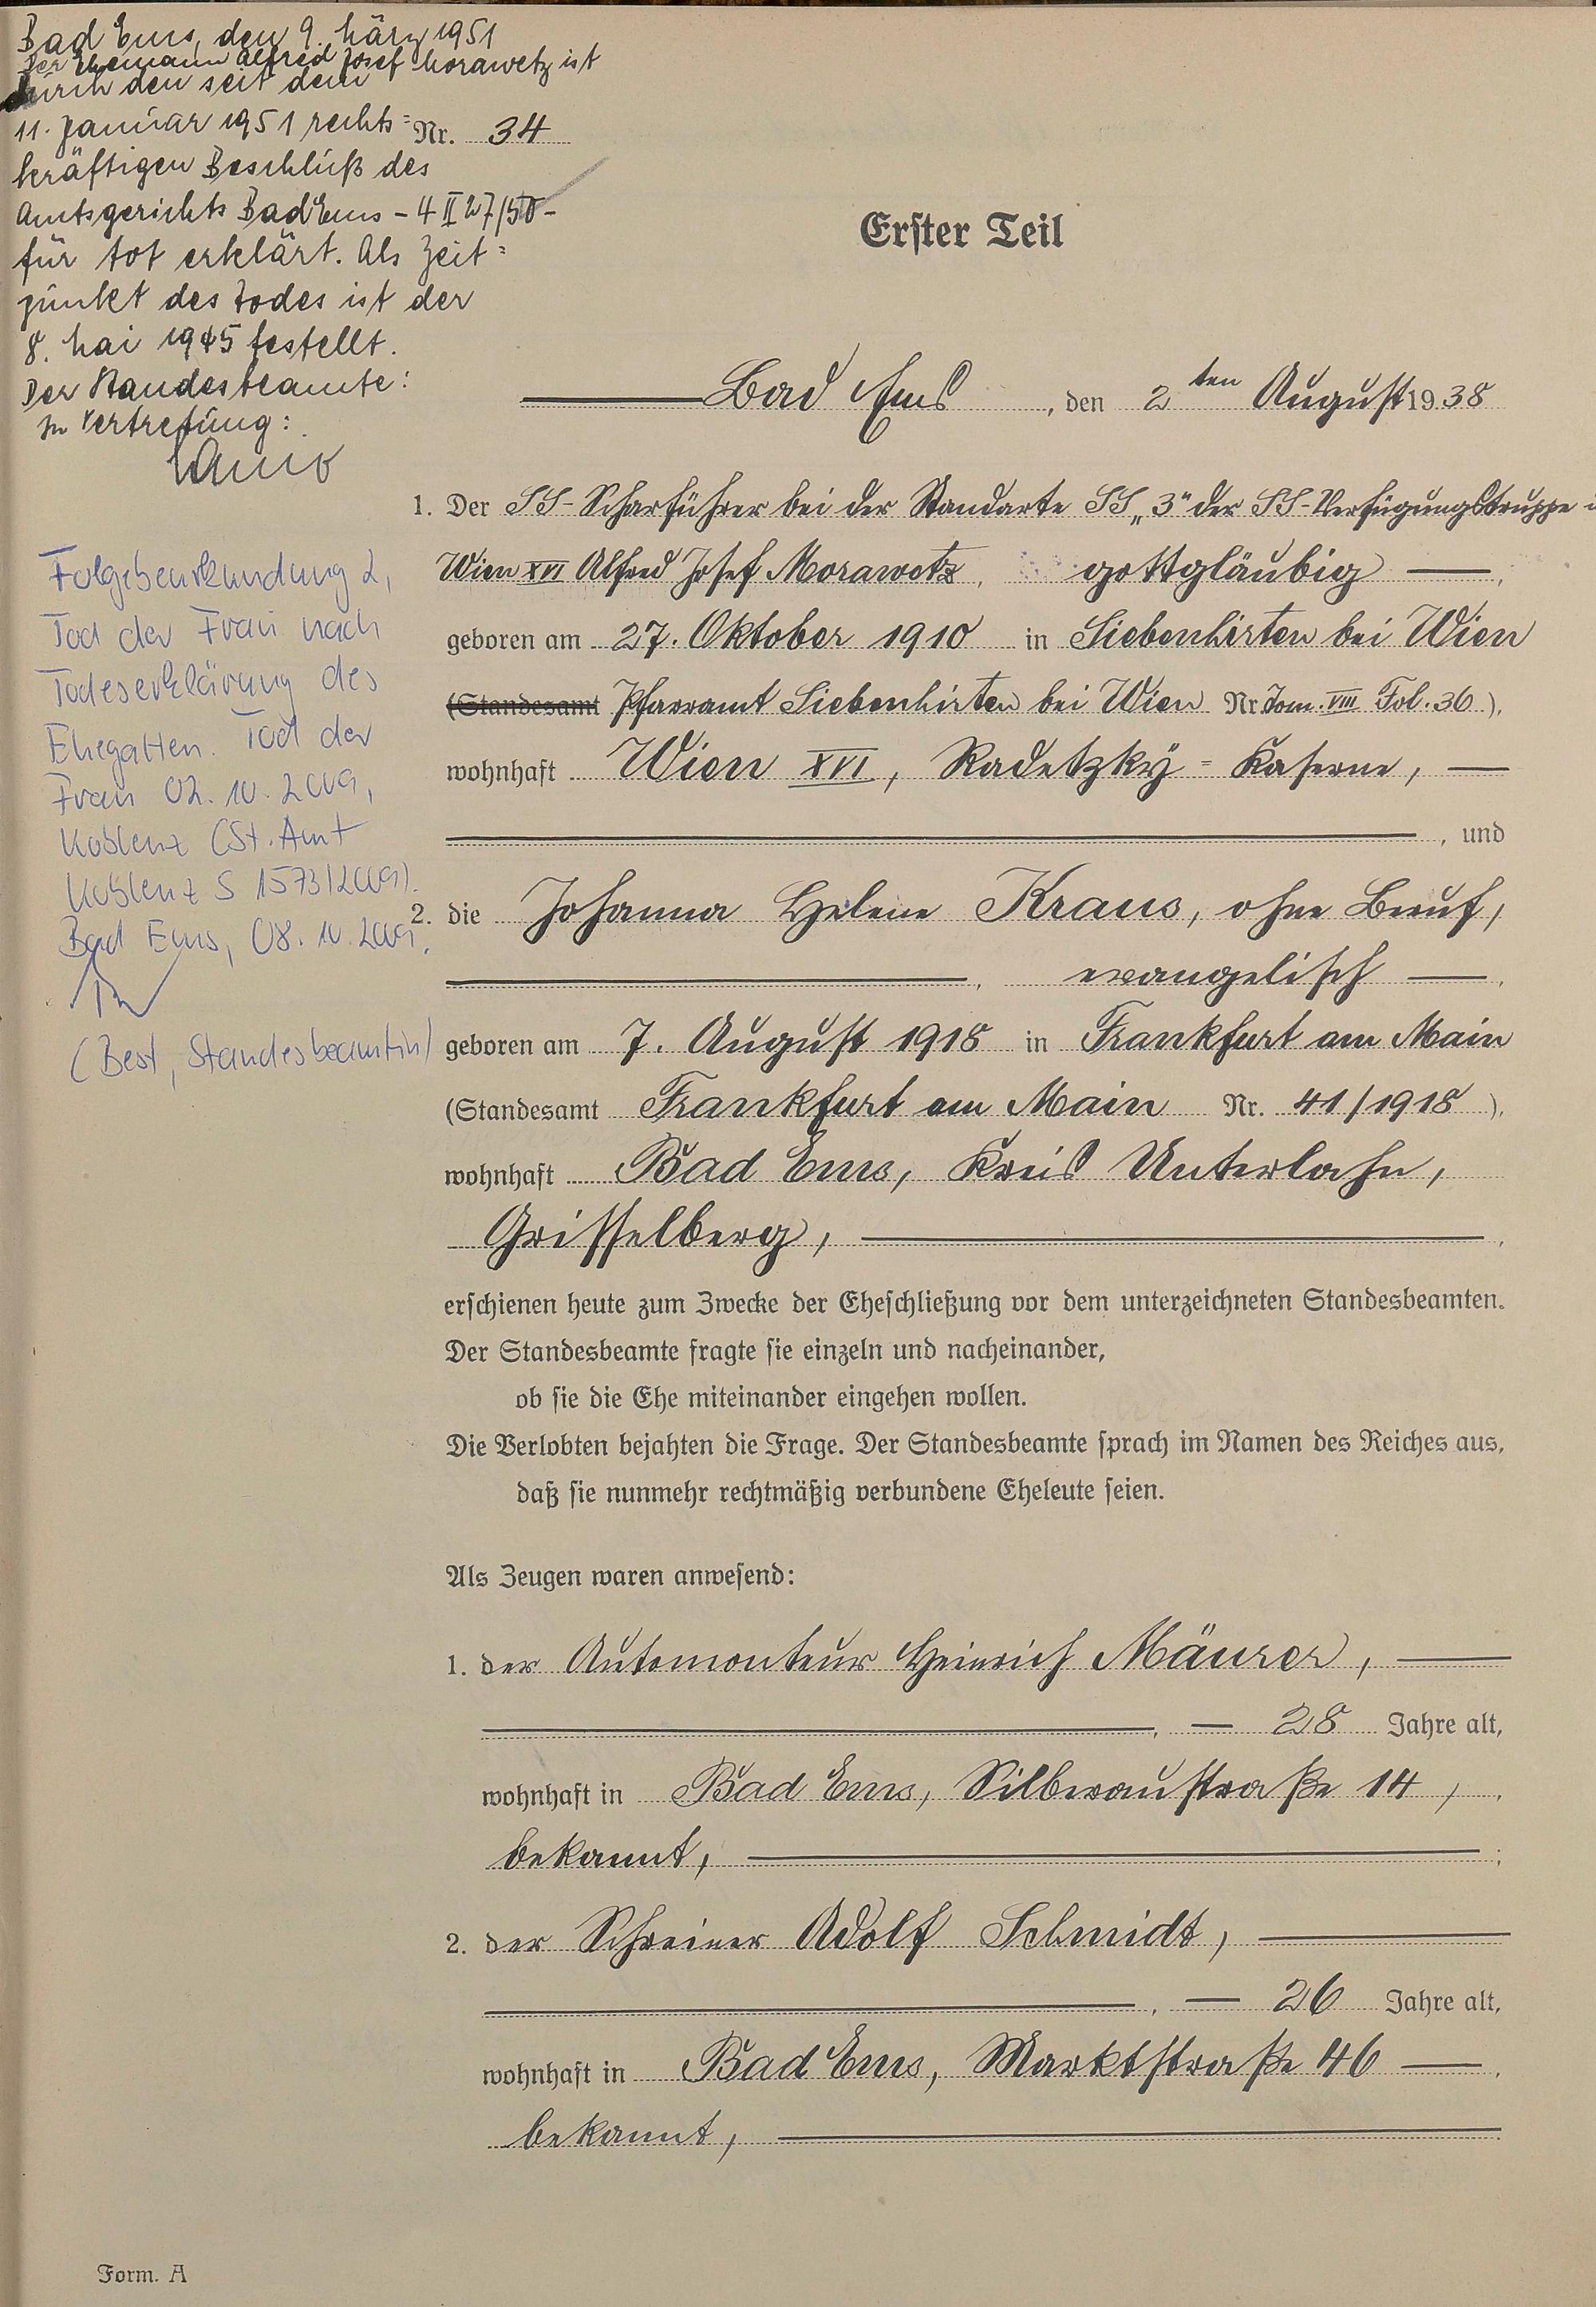 Bad Ems, den 9. März 1951
Der Ehemann Alfred Josef Morawetz ist
durch den seit dem
11. Januar 1951 rechts=
kräftigen Beschluß des
Amtsgerichts Bad Ems – 4 II 27/50 –
für tot erklärt. Als Zeit=
punkt des Todes ist der
8. Mai 1945 festellt.
Der Standesbeamte:
In Vertretung:
Folgebeurkundung 2,
Tod der Frau nach
Todeserklärung des
Ehegatten. Tod der
Frau 02.10.2009,
Koblenz (St. Amt
Koblenz S 1573/2009).
Bad Ems, 08.10.2009.
(Best, Standesbeamtin)
Nr. 34
Erster Teil
Bad Ems, den 2ten August 1938
1. Der SS-Scharführer bei der Standarte SS „3" der SS-Verfügungstruppe
Wien XVI Alfred Josef Morawetz, gottgläubig,
geboren am 27. Oktober 1910 in Siebenhirten bei Wien
(Standesamt Pfarramt Siebenhirten bei Wien Nr. Tom. VIII Fol. 36),
wohnhaft Wien XVI, Radetzky=Kaserne,
, und
2. die Johanna Helene Kraus, ohne Beruf,
, evangelisch,
geboren am 7. August 1918 in Frankfurt am Main
(Standesamt Frankfurt am Main Nr. 41/1918),
wohnhaft Bad Ems, Kreis Unterlahn,
Grisselberg,
erschienen heute zum Zwecke der Eheschließung vor dem unterzeichneten Standesbeamten.
Der Standesbeamte fragte sie einzeln und nacheinander,
ob sie die Ehe miteinander eingehen wollen.
Die Verlobten bejahten die Frage. Der Standesbeamte sprach im Namen des Reiches aus,
daß sie nunmehr rechtmäßig verbundene Eheleute seien.
Als Zeugen waren anwesend:
1. der Automonteur Heinrich Mäurer,
, 28 Jahre alt,
wohnhaft in Bad Ems, Silberaustraße 14,
bekannt, ;
2. der Schreiner Adolf Schmidt,
, 26 Jahre alt,
wohnhaft in Bad Ems, Marktstraße 46,
bekannt,
Form. A